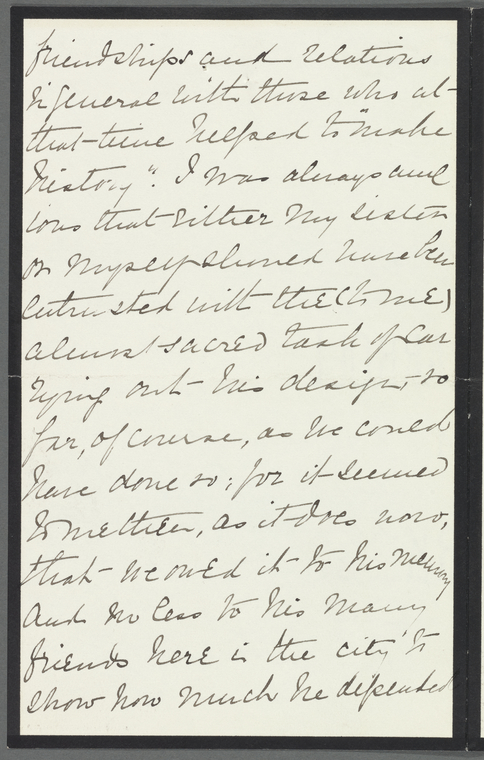 friendships and relations
in general with those who at
that time helped to "make
history". I was always anx
ious that either my sister
or myself should have been
entrusted with the (to me)
almost sacred task of car
rying out his design, so
far, of course, as we could
have done so; for it seemed
to me then, as it does now,
that we owed it to his memory
and no less to his many
friends here in the city to
show how much he depended